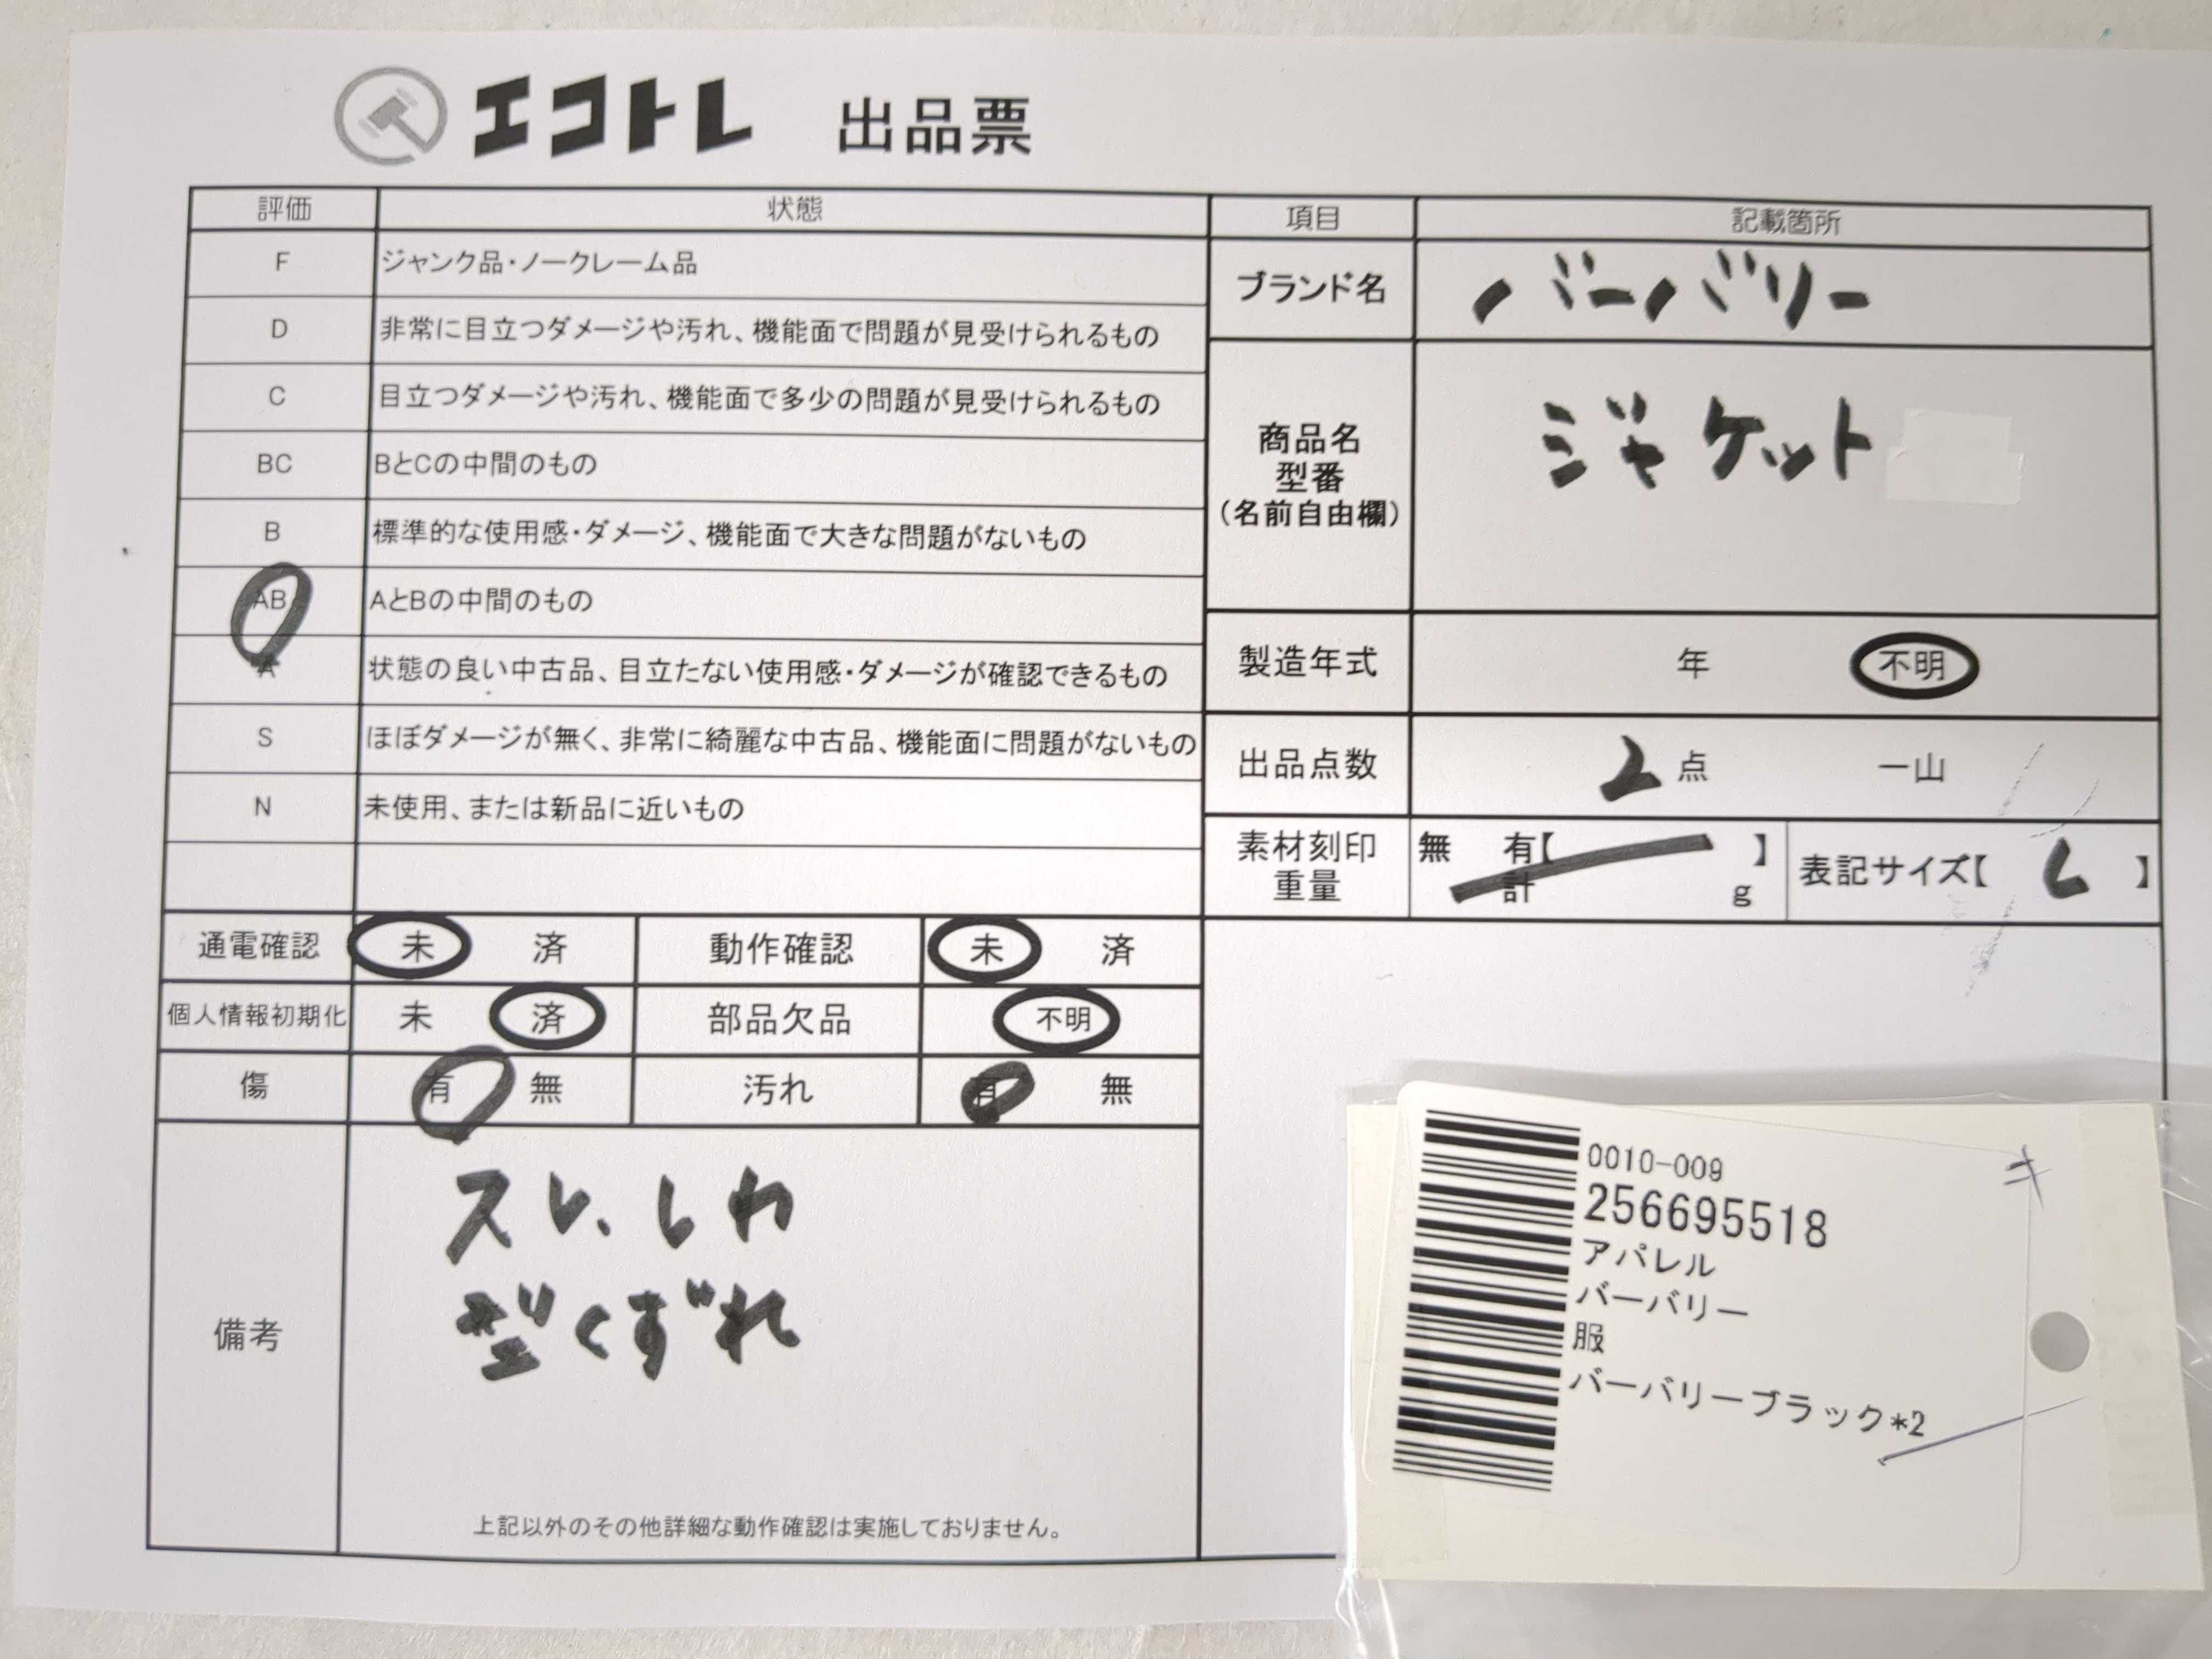 エコトレ 出品票
評価 状態
F ジャンク品・ノークレーム品
D 非常に目立つダメージや汚れ、機能面で問題が見受けられるもの
C 目立つダメージや汚れ、機能面で多少の問題が見受けられるもの
BC BとCの中間のもの
B 標準的な使用感・ダメージ、機能面で大きな問題がないもの
AB AとBの中間のもの
A 状態の良い中古品、目立たない使用感・ダメージが確認できるもの
S ほぼダメージが無く、非常に綺麗な中古品、機能面に問題がないもの
N 未使用、または新品に近いもの
項目 記載箇所
ブランド名 バーバリー
商品名
型番
(名前自由欄)
ジャケット
製造年式 年 不明
出品点数 2 点 一山
素材刻印 無 有【 】
重量 計 g
表記サイズ【 L 】
通電確認 未 済 動作確認 未 済
個人情報初期化 未 済 部品欠品 不明
傷 有 無 汚れ 有 無
備考
スレ、しわ
型くずれ
上記以外のその他詳細な動作確認は実施しておりません。
0010-009
256695518
アパレル
バーバリー
服
バーバリーブラック*2
キ